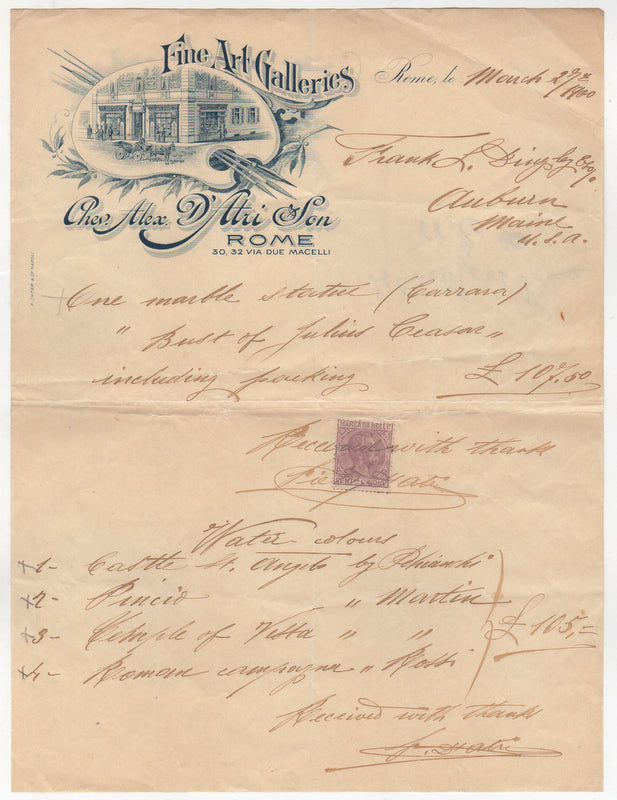 Fine Art Galleries
Rome, le March 27th 1900
Frank L. Dingley Esq
Auburn
Maine
U.S.A.
Chev. Alex. D'Atri & Son
ROME
30, 32 VIA DUE MACELLI
RICHTER & Co NAPOLI
One marble statue (Carrara)
" Bust of Julius Ceasar "
including packing £ 107.50
MARCA DA BOLLO
Received with thank
Water-colours
+1- Castle St. Angelo by
+2- Pincio " Martin
+3- Temple of Vesta " "
+4- Roman campagna " Rossi
£ 105,=
Received with thank